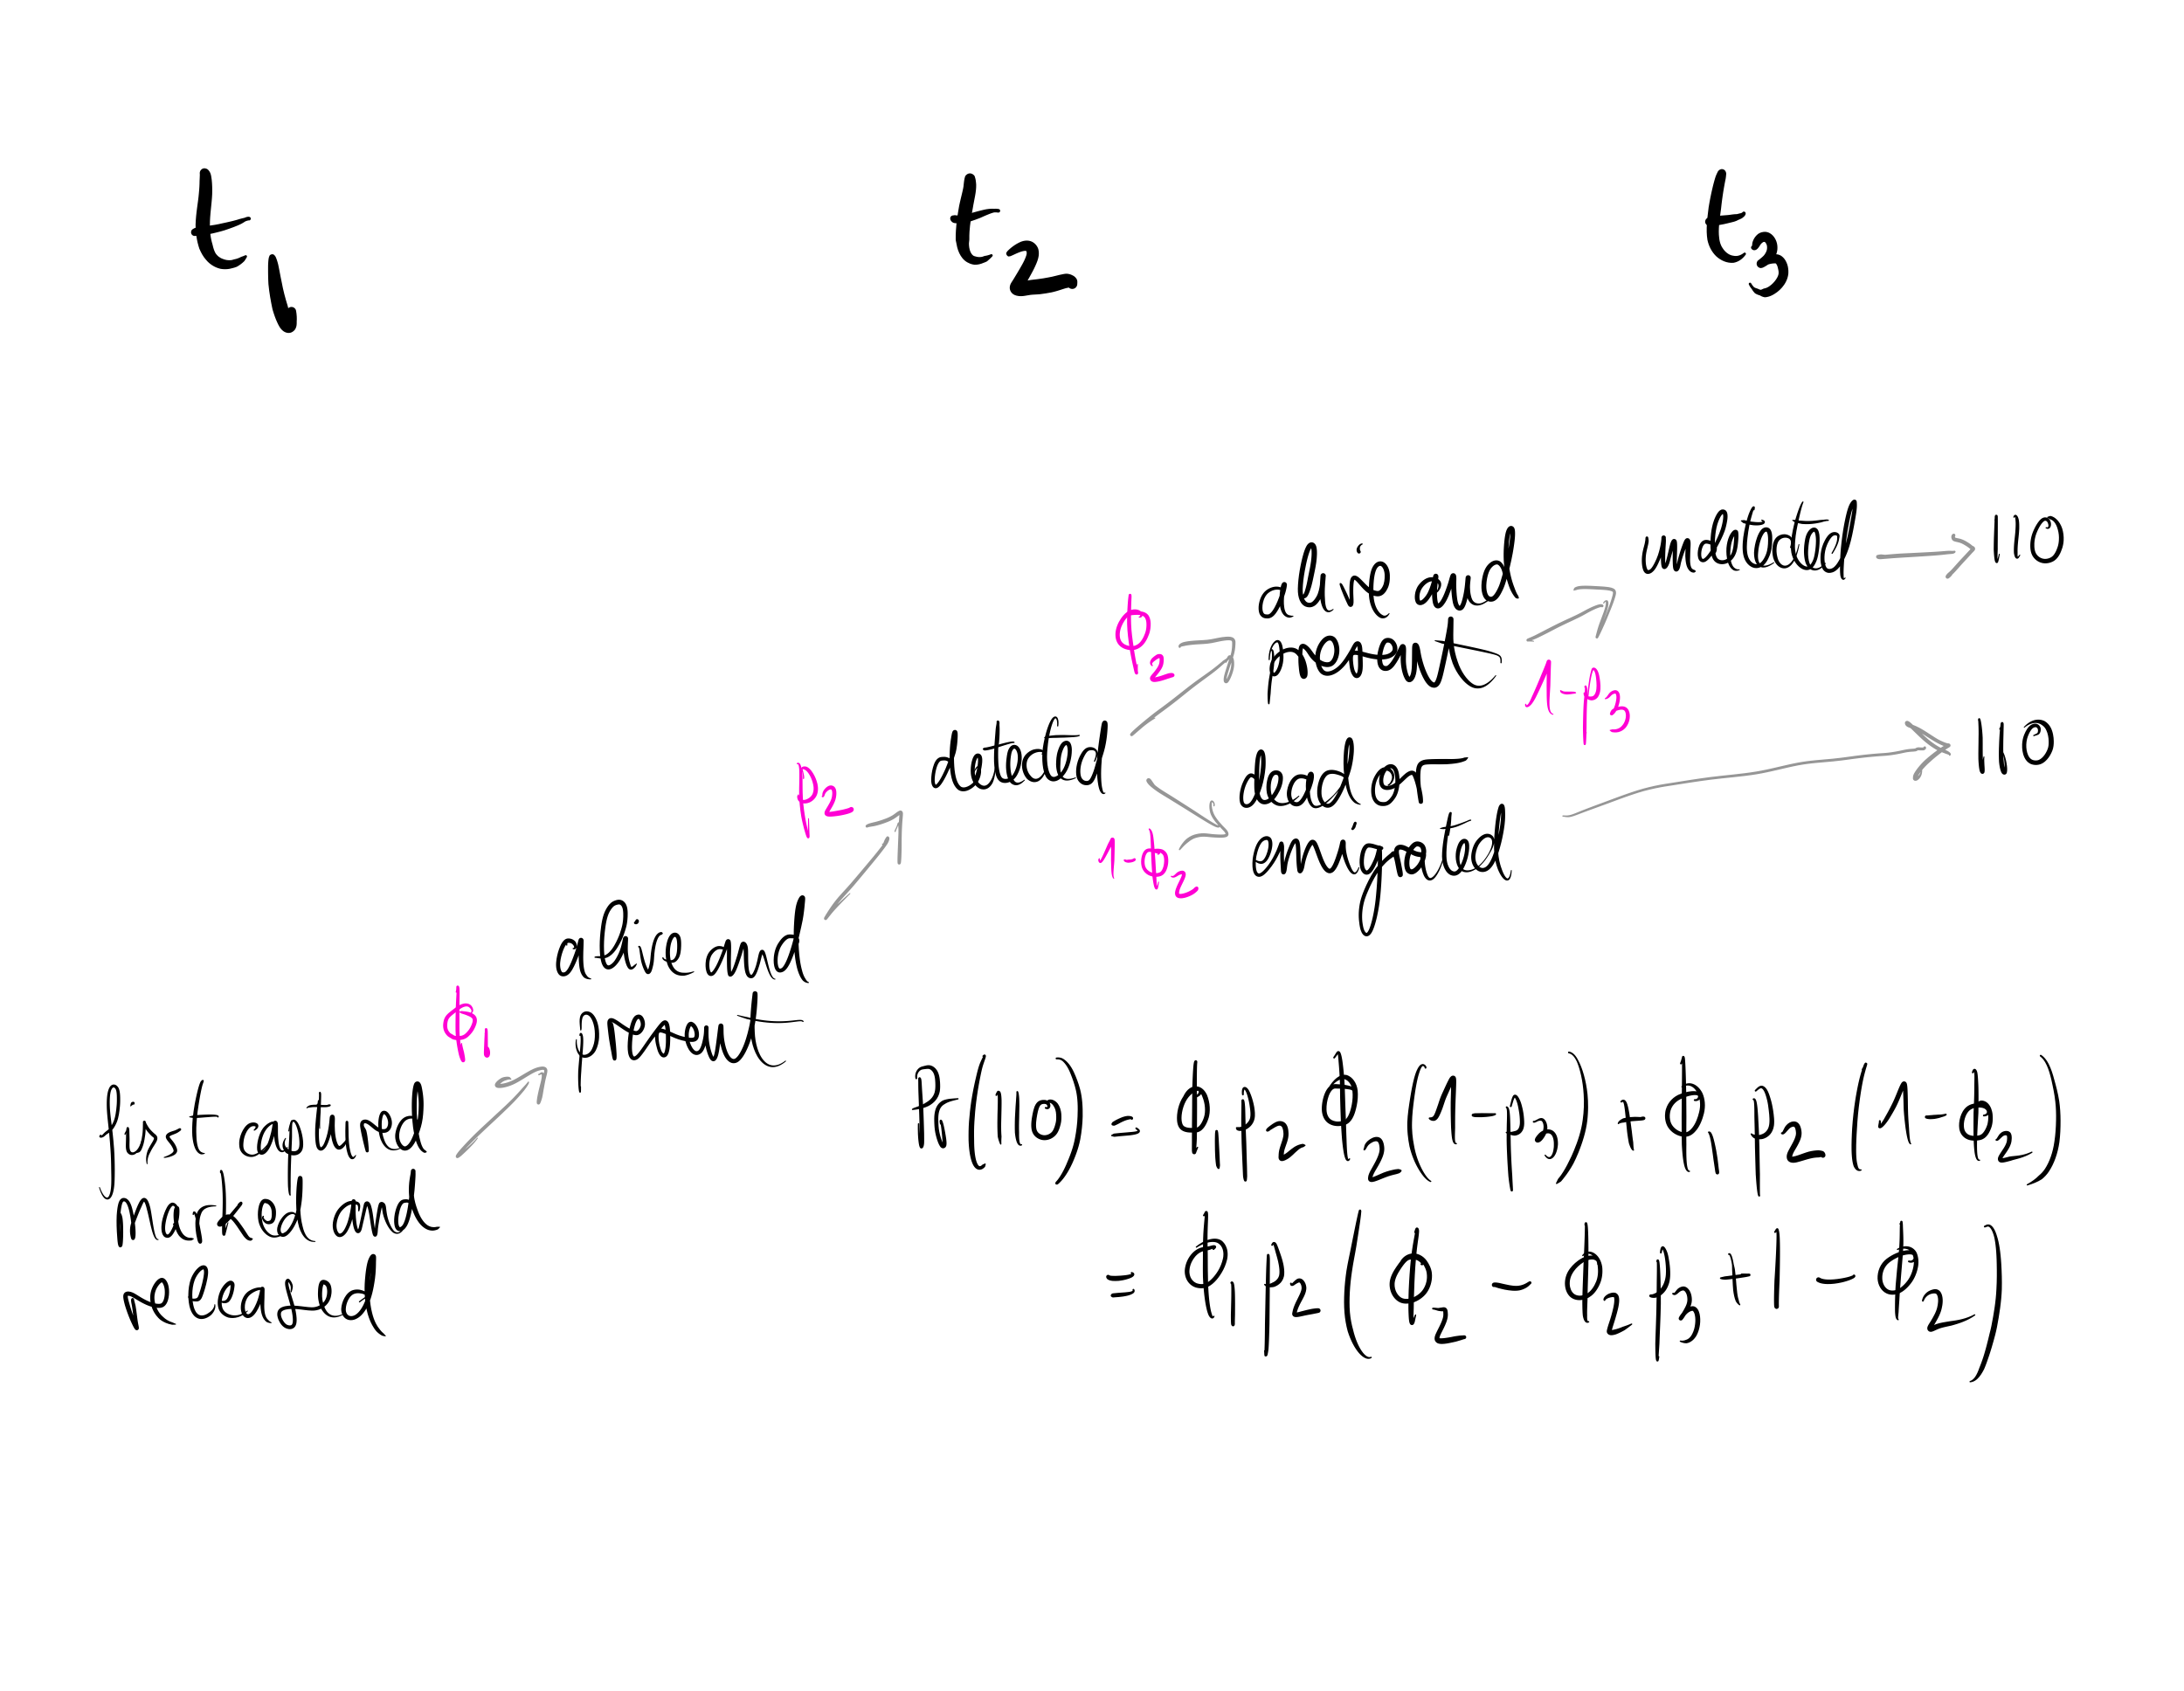 t₁ t₂ t₃
first captured marked and released
ϕ₁
alive and present
p₂
detected
ϕ₂
alive and present
1-p₃
undetected → 110
1-ϕ₂
dead or emigrated
110
Pr(110) = ϕ₁p₂ϕ₂(1-p₃) + ϕ₁p₂(1-ϕ₂)
= ϕ₁p₂(ϕ₂ - ϕ₂p₃ + 1 - ϕ₂)